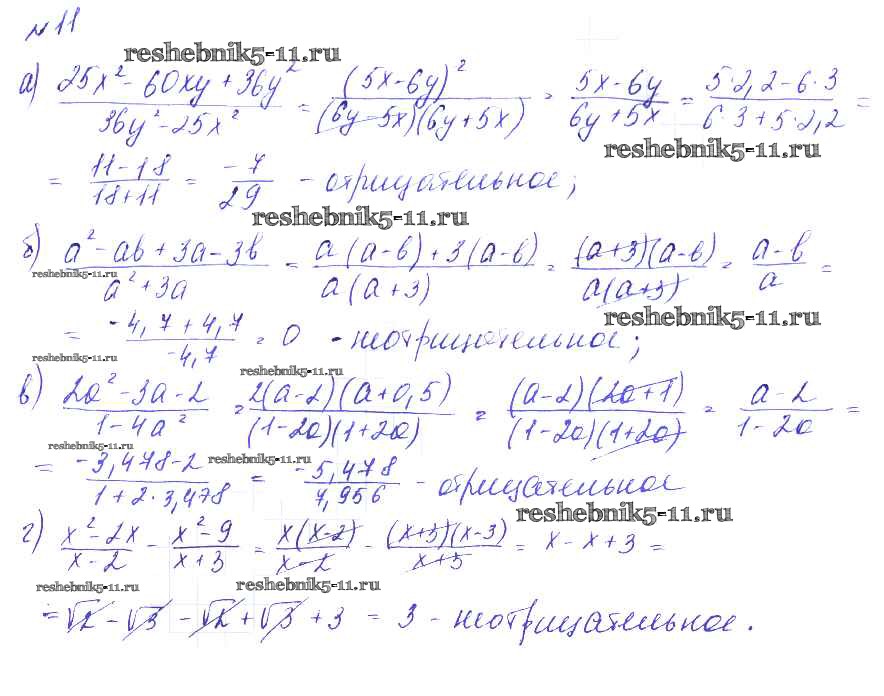 №11
reshebnik5-11.ru
а) (25x² - 60xy + 36y²)/(36y² - 25x²) = (5x - 6y)²/((6y - 5x)(6y + 5x)) = (5x - 6y)/(6y + 5x) = (5·2,2 - 6·3)/(6·3 + 5·2,2) =
reshebnik5-11.ru
= (11 - 18)/(18 + 11) = -7/29 - отрицательное;
reshebnik5-11.ru
б) (a² - ab + 3a - 3b)/(a² + 3a) = (a(a - b) + 3(a - b))/(a(a + 3)) = ((a + 3)(a - b))/(a(a + 3)) = (a - b)/a =
reshebnik5-11.ru
reshebnik5-11.ru
= (-4,7 + 4,7)/(-4,7) = 0 - неотрицательное;
reshebnik5-11.ru
reshebnik5-11.ru
в) (2a² - 3a - 2)/(1 - 4a²) = (2(a - 2)(a + 0,5))/((1 - 2a)(1 + 2a)) = ((a - 2)(2a + 1))/((1 - 2a)(1 + 2a)) = (a - 2)/(1 - 2a) =
reshebnik5-11.ru
reshebnik5-11.ru
= (-3,478 - 2)/(1 + 2·3,478) = -5,478/7,956 - отрицательное
reshebnik5-11.ru
г) (x² - 2x)/(x - 2) - (x² - 9)/(x + 3) = (x(x - 2))/(x - 2) - ((x + 3)(x - 3))/(x + 3) = x - x + 3 =
reshebnik5-11.ru
reshebnik5-11.ru
= √2 - √3 - √2 + √3 + 3 = 3 - неотрицательное.